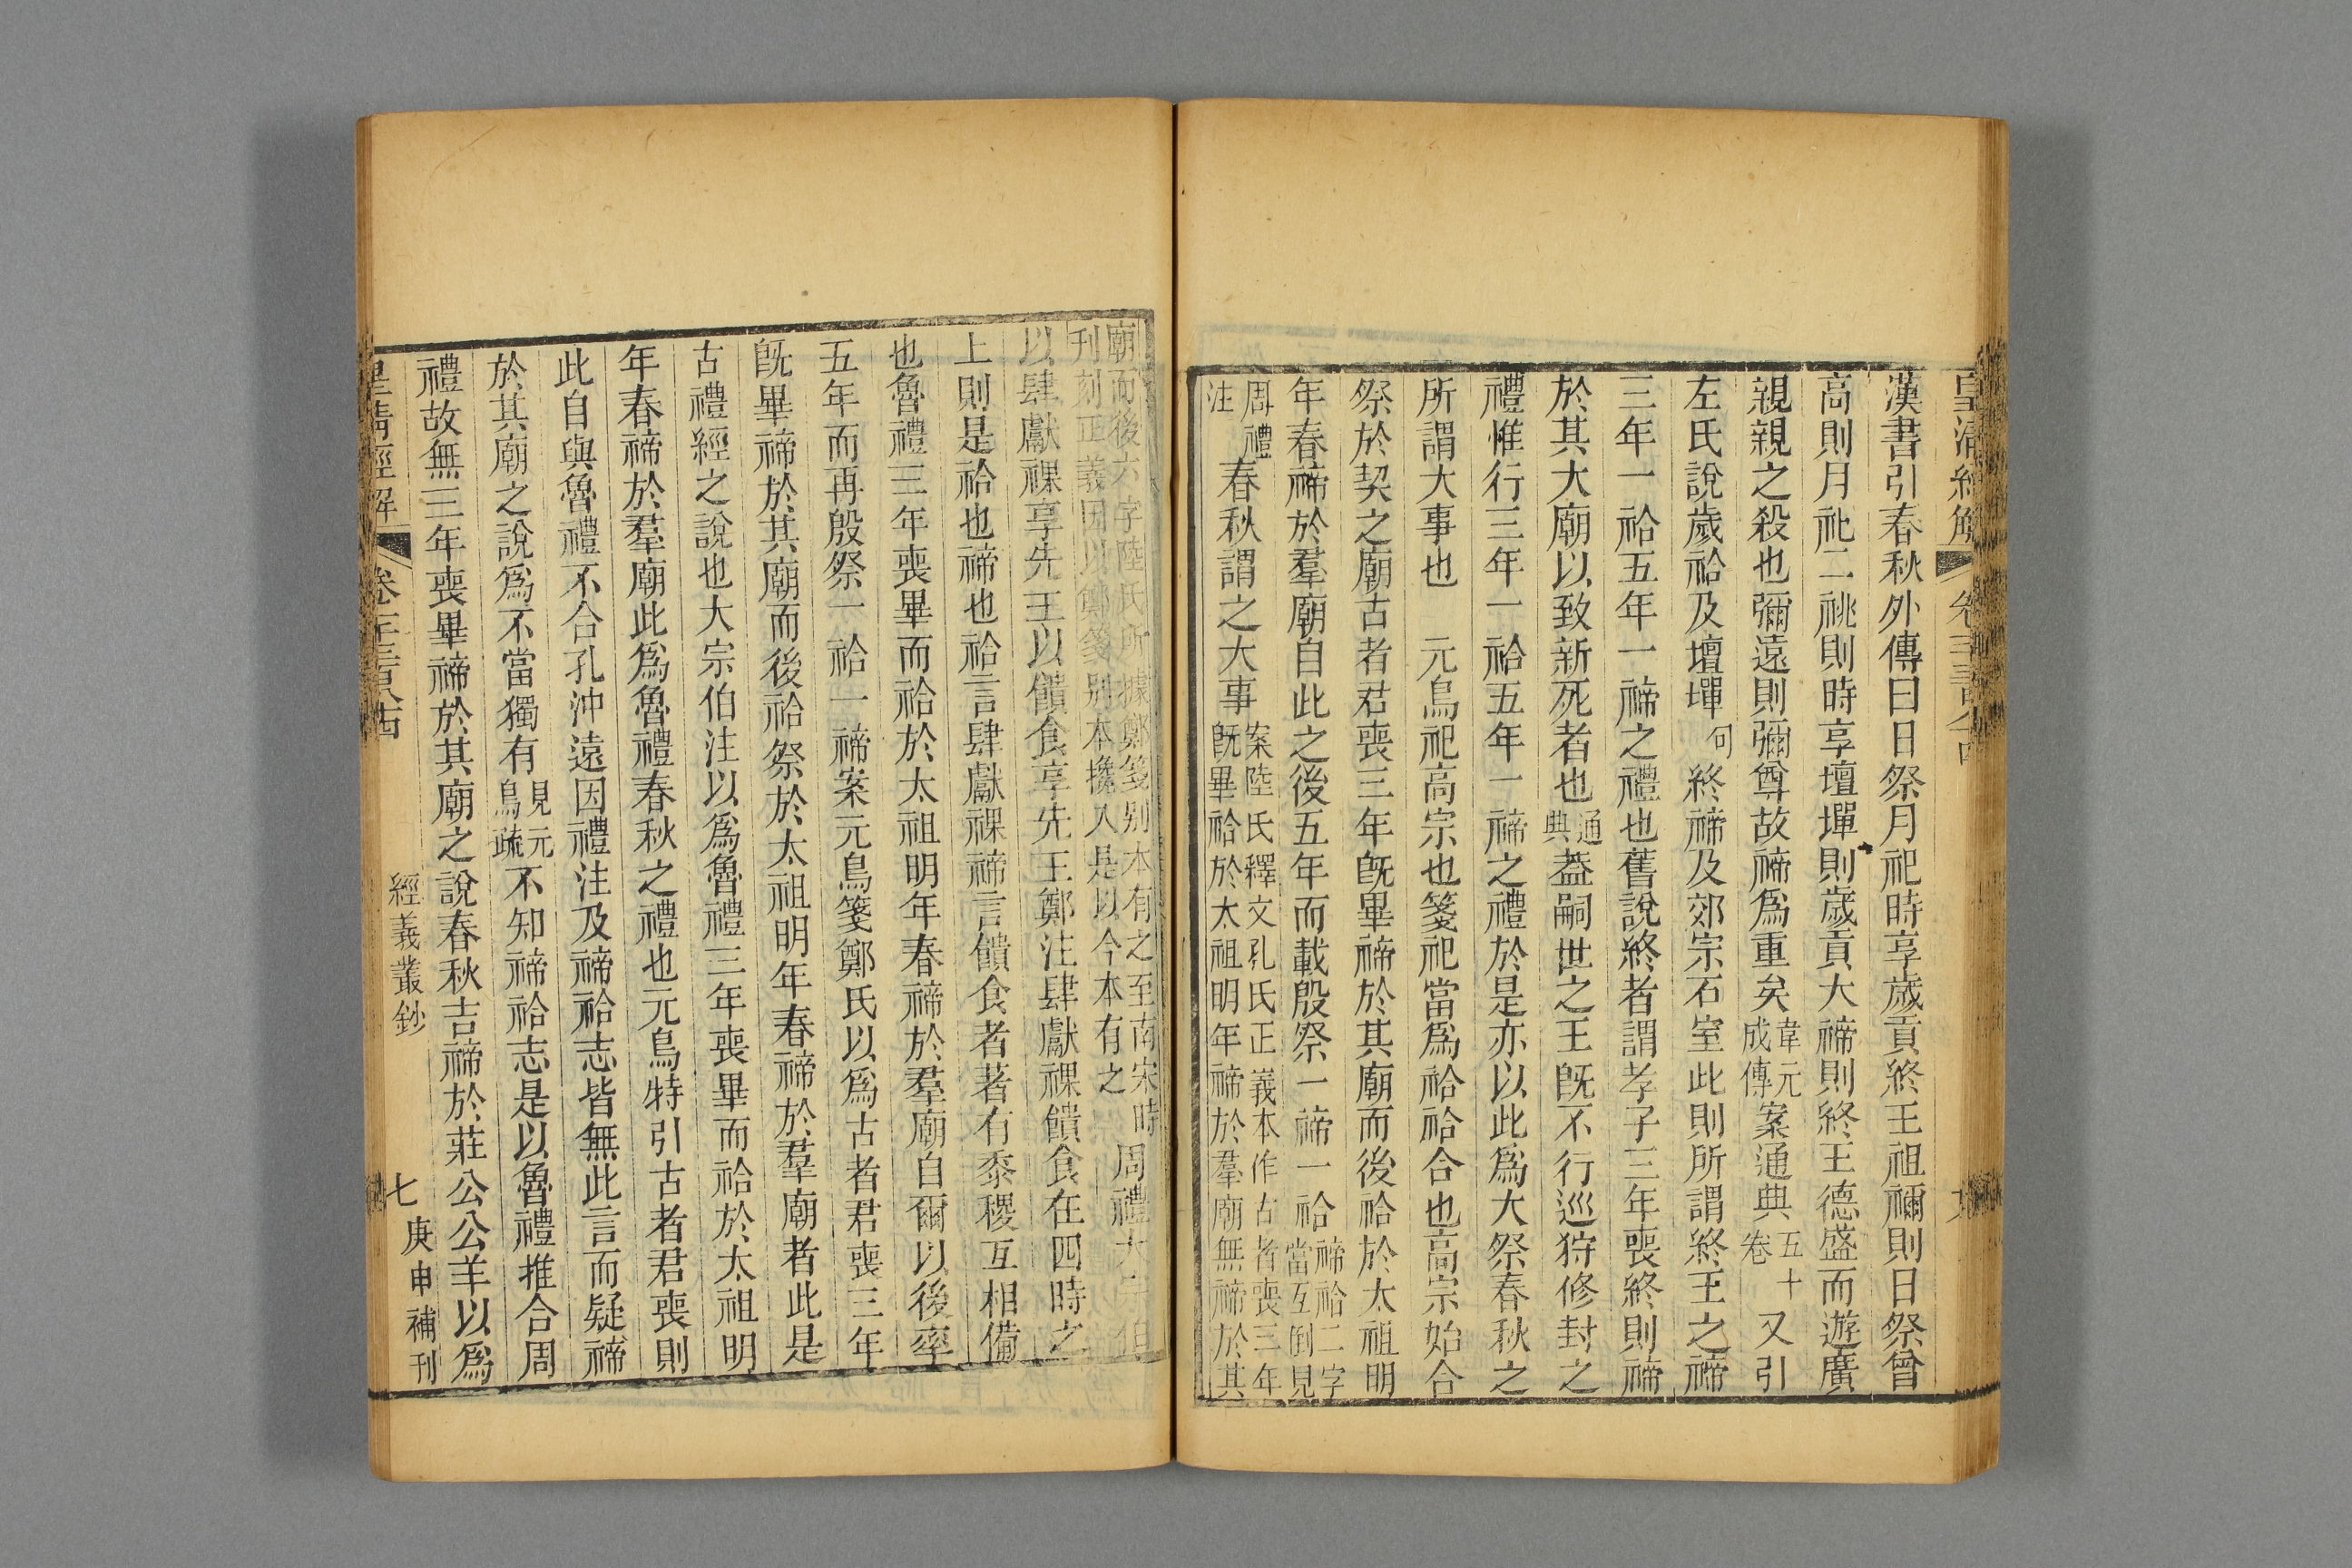 漢書引春秋外傳曰日祭月祀時享歲貢終王祖禰則日祭曾
高則月祀二祧則時享壇墠則歲貢大禘則終王德盛而遊廣
親親之殺也彌遠則彌尊故禘爲重矣韋元成傳案通典五十卷又引
左氏說歲祫及壇墠句終禘及郊宗石室此則所謂終王之禘
三年一祫五年一禘之禮也舊說終者謂孝子三年喪終則禘
於其大廟以致新死者也通典蓋嗣世之王旣不行巡狩修封之
禮惟行三年一祫五年一禘之禮於是亦以此爲大祭春秋之
所謂大事也 元鳥祀高宗也箋祀當爲祫祫合也高宗始合
祭於契之廟古者君喪三年旣畢禘於其廟而後祫於太祖明
年春禘於羣廟自此之後五年而載殷祭一禘一祫禘祫二字當互倒見
周禮注春秋謂之大事案陸氏釋文孔氏正義本作古者喪三年旣畢祫於太祖明年禘於羣廟無禘於其
廟而後六字陸氏所據鄭箋別本有之至南宋時刊刻正義因以鄭箋別本攙入是以今本有之周禮大宗伯
以肆獻祼享先王以饋食享先王鄭注肆獻祼饋食在四時之
上則是祫也禘也祫言肆獻祼禘言饋食者著有黍稷互相備
也魯禮三年喪畢而祫於太祖明年春禘於羣廟自爾以後率
五年而再殷祭一祫一禘案元鳥箋鄭氏以爲古者君喪三年
旣畢禘於其廟而後祫祭於太祖明年春禘於羣廟者此是
古禮經之說也大宗伯注以爲魯禮三年喪畢而祫於太祖明
年春禘於羣廟此爲魯禮春秋之禮也元鳥特引古者君喪則
此自與魯禮不合孔沖遠因禮注及禘祫志皆無此言而疑禘
於其廟之說爲不當獨有見元鳥疏不知禘祫志是以魯禮推合周
禮故無三年喪畢禘於其廟之說春秋吉禘於莊公公羊以爲
皇清經解
經義叢鈔
七
庚申補刊